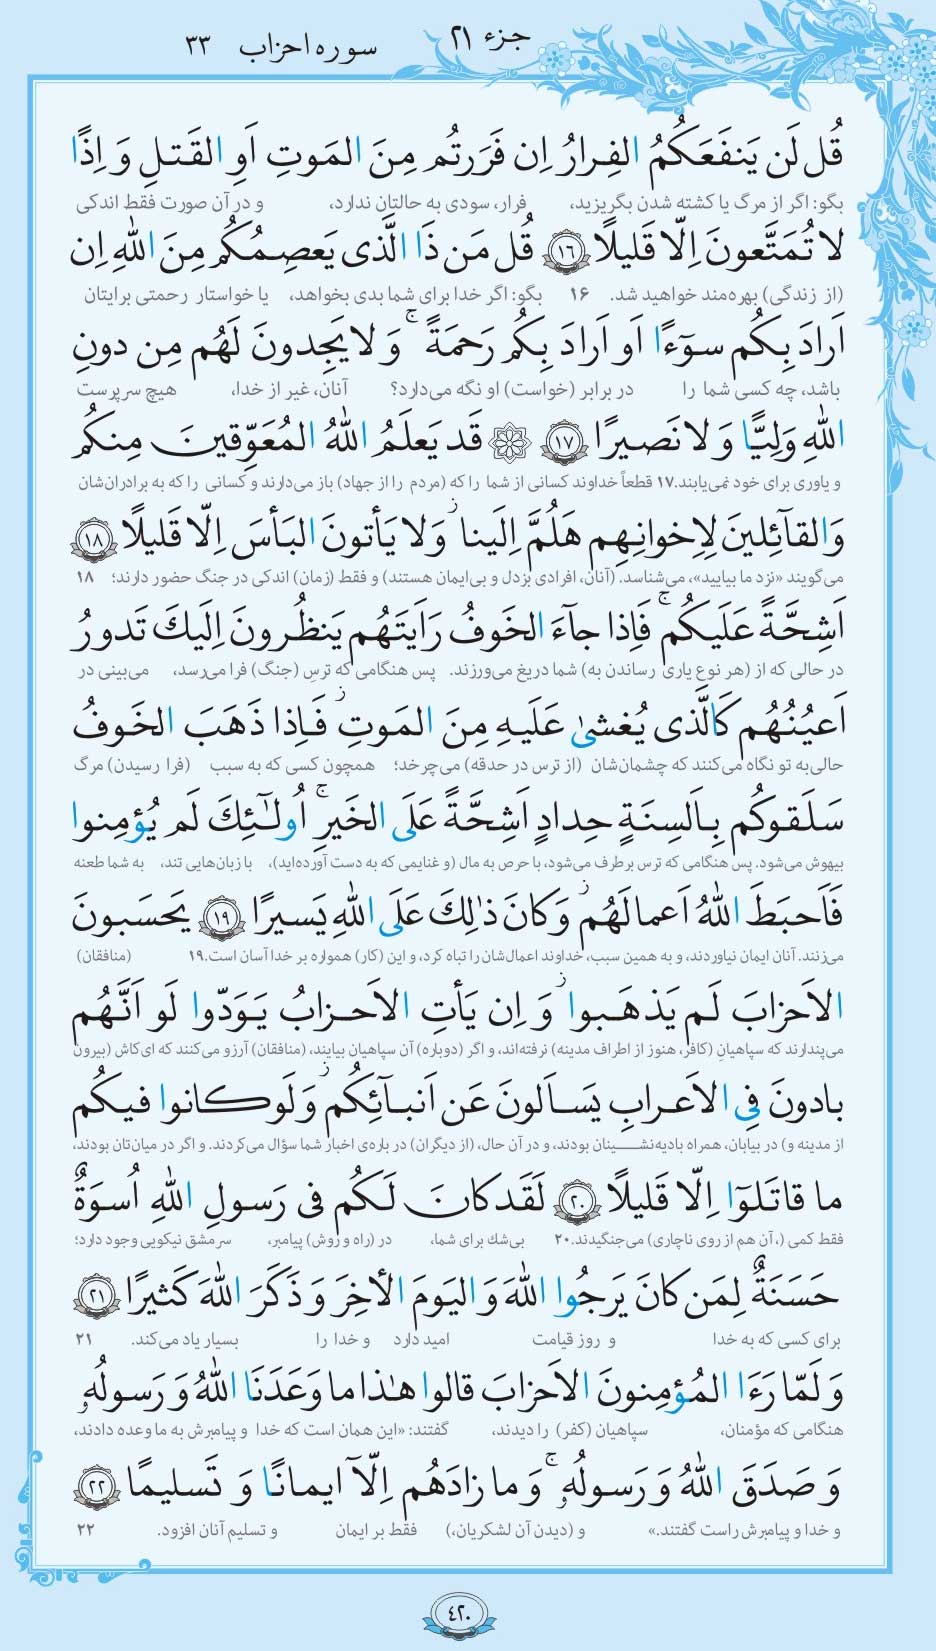 جزء ۲۱
سوره احزاب ۳۳
قُل لَن يَنفَعَكُمُ الفِرارُ اِن فَرَرتُم مِنَ المَوتِ اَوِ القَتلِ وَ اِذًا
بگو: اگر از مرگ یا کشته شدن بگریزید، فرار، سودی به حالتان ندارد، و در آن صورت فقط اندکی
لا تُمَتَّعونَ اِلّا قَليلًا ۱۶ قُل مَن ذَا الَّذی يَعصِمُكُم مِنَ اللهِ اِن
(از زندگی) بهره‌مند خواهید شد. ۱۶ بگو: اگر خدا برای شما بدی بخواهد، یا خواستار رحمتی برایتان
اَرادَ بِكُم سوٓءًا اَو اَرادَ بِكُم رَحمَةً ۚ وَ لا يَجِدونَ لَهُم مِن دونِ
باشد، چه کسی شما را در برابر (خواست) او نگه می‌دارد؟ آنان، غیر از خدا، هیچ سرپرست
اللهِ وَلِيًّا وَ لا نَصيرًا ۱۷ ۞ قَد يَعلَمُ اللهُ المُعَوِّقينَ مِنكُم
و یاوری برای خود نمی‌یابند.۱۷ قطعاً خداوند کسانی از شما را که (مردم را از جهاد) باز می‌دارند و کسانی را که به برادران‌شان
وَالقآئِلينَ لِاِخوانِهِم هَلُمَّ اِلَينا ۖ وَ لا يَأتونَ البَأسَ اِلّا قَليلًا ۱۸
می‌گویند «نزد ما بیایید»، می‌شناسد. (آنان، افرادی بزدل و بی‌ایمان هستند) و فقط (زمان) اندکی در جنگ حضور دارند؛ ۱۸
اَشِحَّةً عَلَيكُم ۚ فَاِذا جآءَ الخَوفُ رَاَيتَهُم يَنظُرونَ اِلَيكَ تَدورُ
در حالی که از (هر نوع یاری رساندن به) شما دریغ می‌ورزند. پس هنگامی که ترسِ (جنگ) فرا می‌رسد، می‌بینی در
اَعيُنُهُم كَالَّذی يُغشىٰ عَلَيهِ مِنَ المَوتِ ۖ فَاِذا ذَهَبَ الخَوفُ
حالی‌به تو نگاه می‌کنند که چشمان‌شان (از ترس در حدقه) می‌چرخد؛ همچون کسی که به سبب (فرا رسیدن) مرگ
سَلَقوكُم بِاَلسِنَةٍ حِدادٍ اَشِحَّةً عَلَى الخَيرِ ۚ اُولـٰٓئِكَ لَم يُؤمِنوا
بیهوش می‌شود. پس هنگامی که ترس برطرف می‌شود، با حرص به مال (و غنایمی که به دست آورده‌اید)، با زبان‌هایی تند، به شما طعنه
فَاَحبَطَ اللهُ اَعمالَهُم ۖ وَ كانَ ذٰلِكَ عَلَى اللهِ يَسيرًا ۱۹ يَحسَبونَ
می‌زنند. آنان ایمان نیاوردند، و به همین سبب، خداوند اعمال‌شان را تباه کرد، و این (کار) همواره بر خدا آسان است.۱۹ (منافقان)
الاَحزابَ لَم يَذهَبوا ۖ وَ اِن يَأتِ الاَحزابُ يَوَدّوا لَو اَنَّهُم
می‌پندارند که سپاهیانِ (کافر، هنوز از اطراف مدینه) نرفته‌اند، و اگر (دوباره) آن سپاهیان بیایند، (منافقان) آرزو می‌کنند که ای‌کاش (بیرون
بادونَ فِی الاَعرابِ يَسـاَلونَ عَن اَنبـآئِكُم ۖ وَ لَو كانوا فيكُم
از مدینه و) در بیابان، همراه بادیه‌نشینان بودند، و در آن حال، (از دیگران) در باره‌ی اخبار شما سؤال می‌کردند. و اگر در میان‌تان بودند،
ما قاتَلوٓا اِلّا قَليلًا ۲۰ لَقَد كانَ لَكُم فی رَسولِ اللهِ اُسوَةٌ
فقط کمی (، آن هم از روی ناچاری) می‌جنگیدند.۲۰ بی‌شك برای شما، در (راه و روش) پیامبر، سرمشق نیکویی وجود دارد؛
حَسَنَةٌ لِمَن كانَ يَرجُوا اللهَ وَ اليَومَ الأخِرَ وَ ذَكَرَ اللهَ كَثيرًا ۲۱
برای کسی که به خدا و روز قیامت امید دارد و خدا را بسیار یاد می‌کند. ۲۱
وَ لَمّا رَءَا المُؤمِنونَ الاَحزابَ قالوا هـٰذا ما وَعَدَنَا اللهُ وَ رَسولُهُ
هنگامی که مؤمنان، سپاهیان (کفر) را دیدند، گفتند: «این همان است که خدا و پیامبرش به ما وعده دادند،
وَ صَدَقَ اللهُ وَ رَسولُهُ ۚ وَ ما زادَهُم اِلّآ ايمانًا وَ تَسليمًا ۲۲
و خدا و پیامبرش راست گفتند.» و (دیدن آن لشکریان،) فقط بر ایمان و تسلیم آنان افزود. ۲۲
۴۲۰